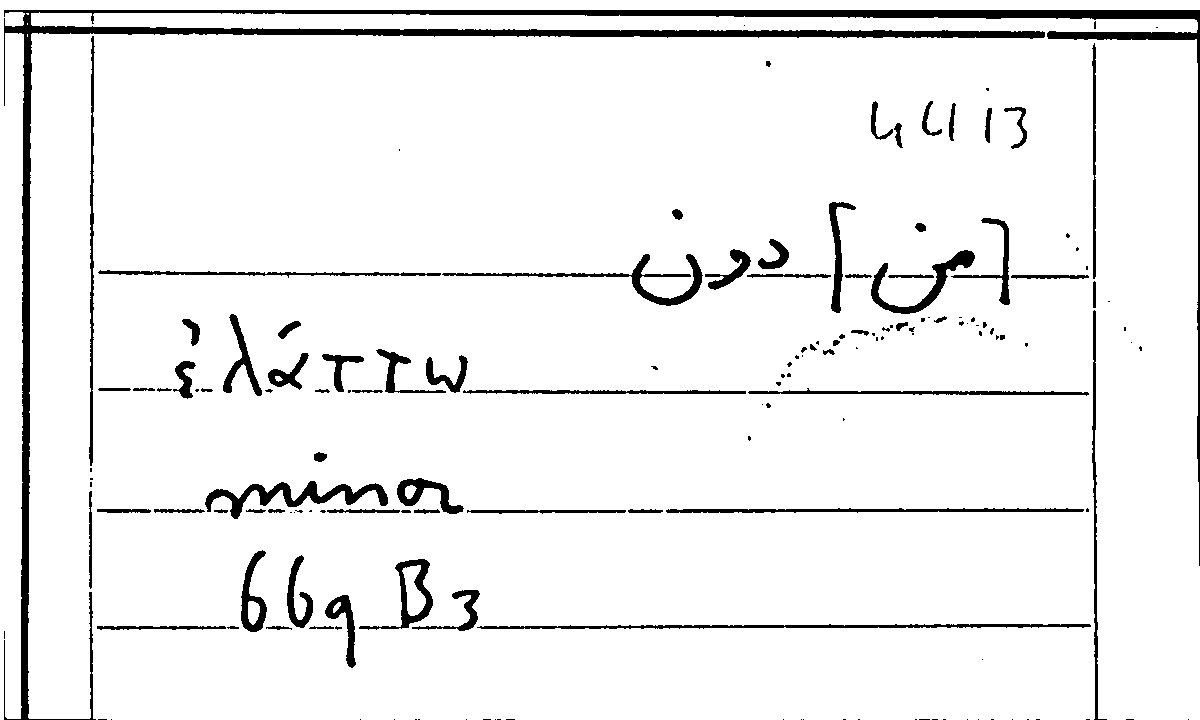 4413
[من] دون
ἐλάττω
minor
669 B3